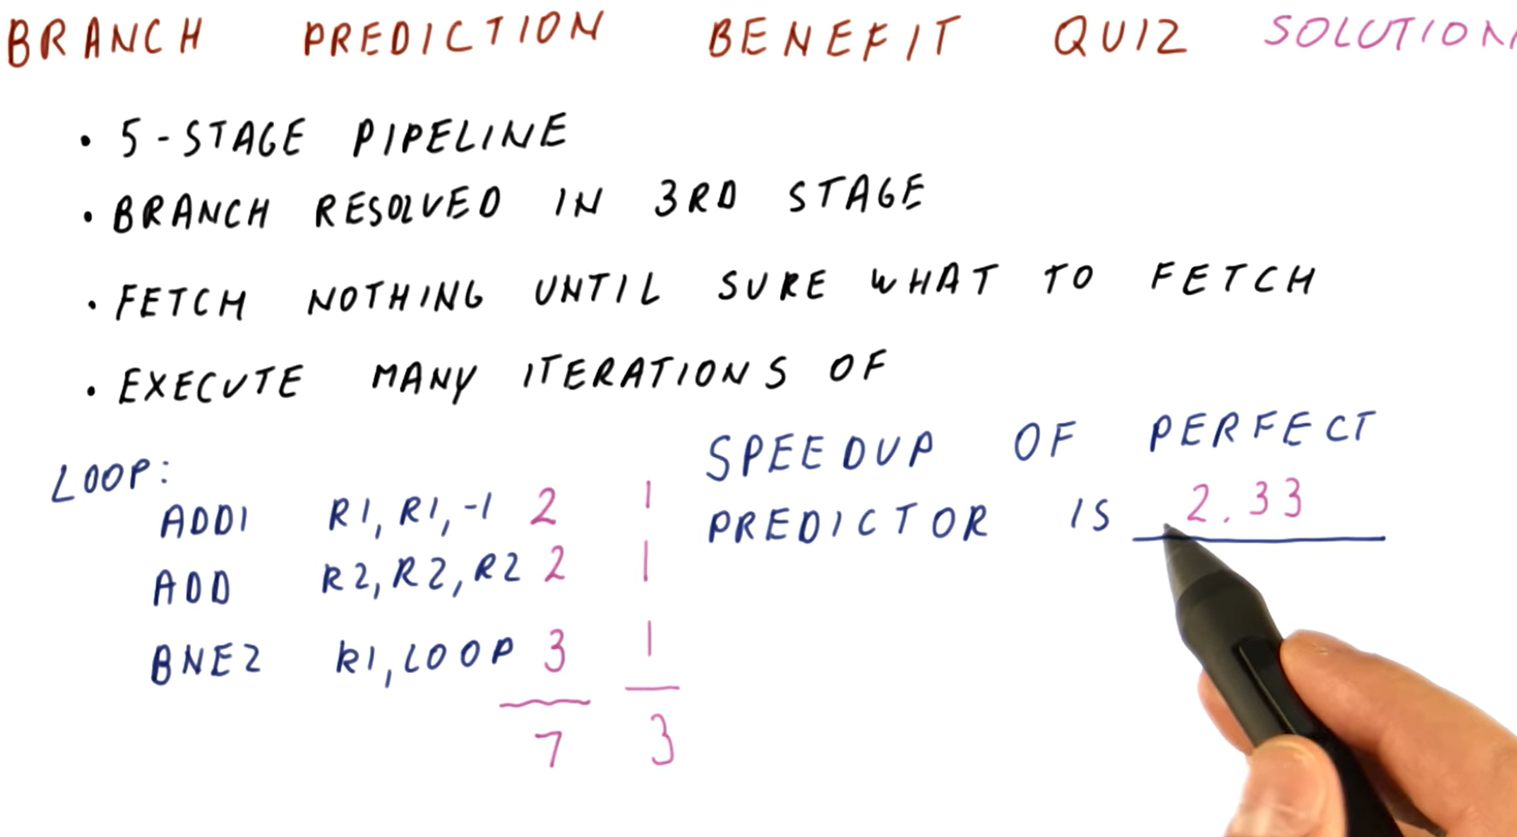 BRANCH PREDICTION BENEFIT QUIZ SOLUTION
• 5-STAGE PIPELINE
• BRANCH RESOLVED IN 3RD STAGE
• FETCH NOTHING UNTIL SURE WHAT TO FETCH
• EXECUTE MANY ITERATIONS OF
LOOP:
ADDI R1, R1, -1 2 1
ADD R2, R2, R2 2 1
BNEZ R1, LOOP 3 1
7 3
SPEEDUP OF PERFECT
PREDICTOR IS 2.33